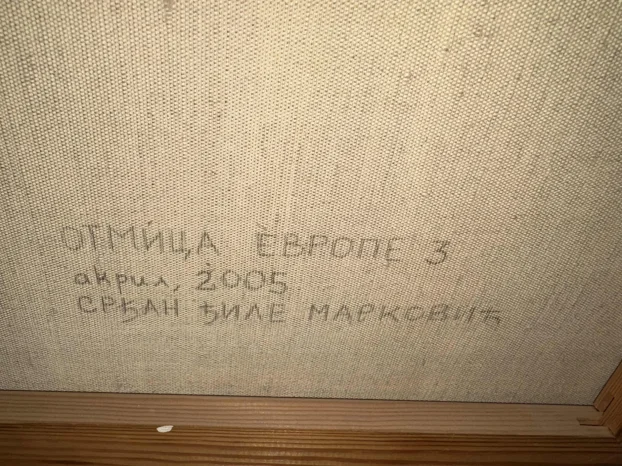 ОТМИЦА ЕВРОПЕ 3
акрил, 2005
СРЂАН ЂИЛЕ МАРКОВИЋ